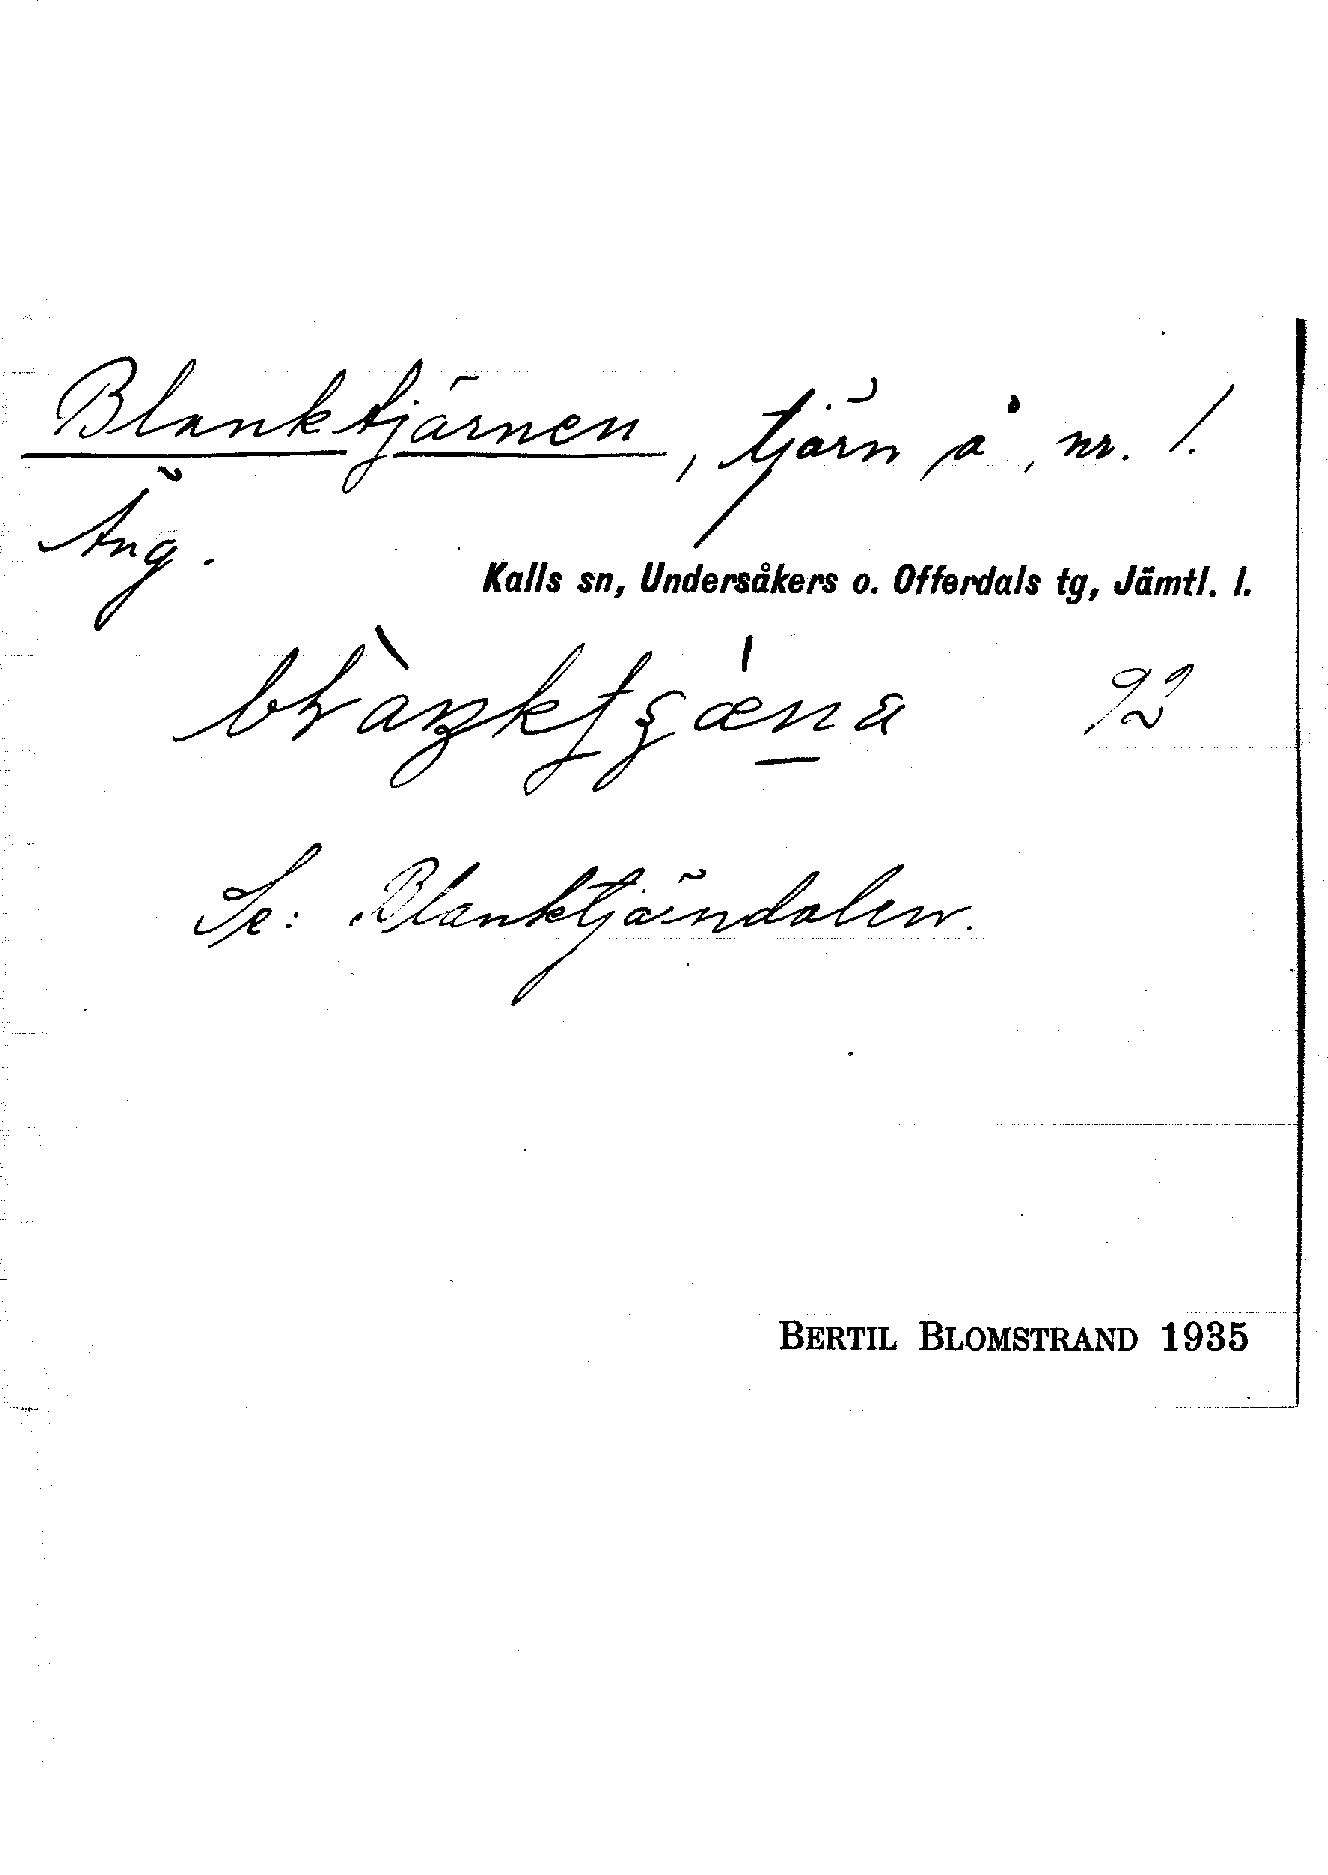 Blanktjärnen, tjärn å, nr. 1.
Äng.
Kalls sn, Undersåkers o. Offerdals tg, Jämtl. l.
92
Se: Blanktjärndalen.
BERTIL BLOMSTRAND 1935